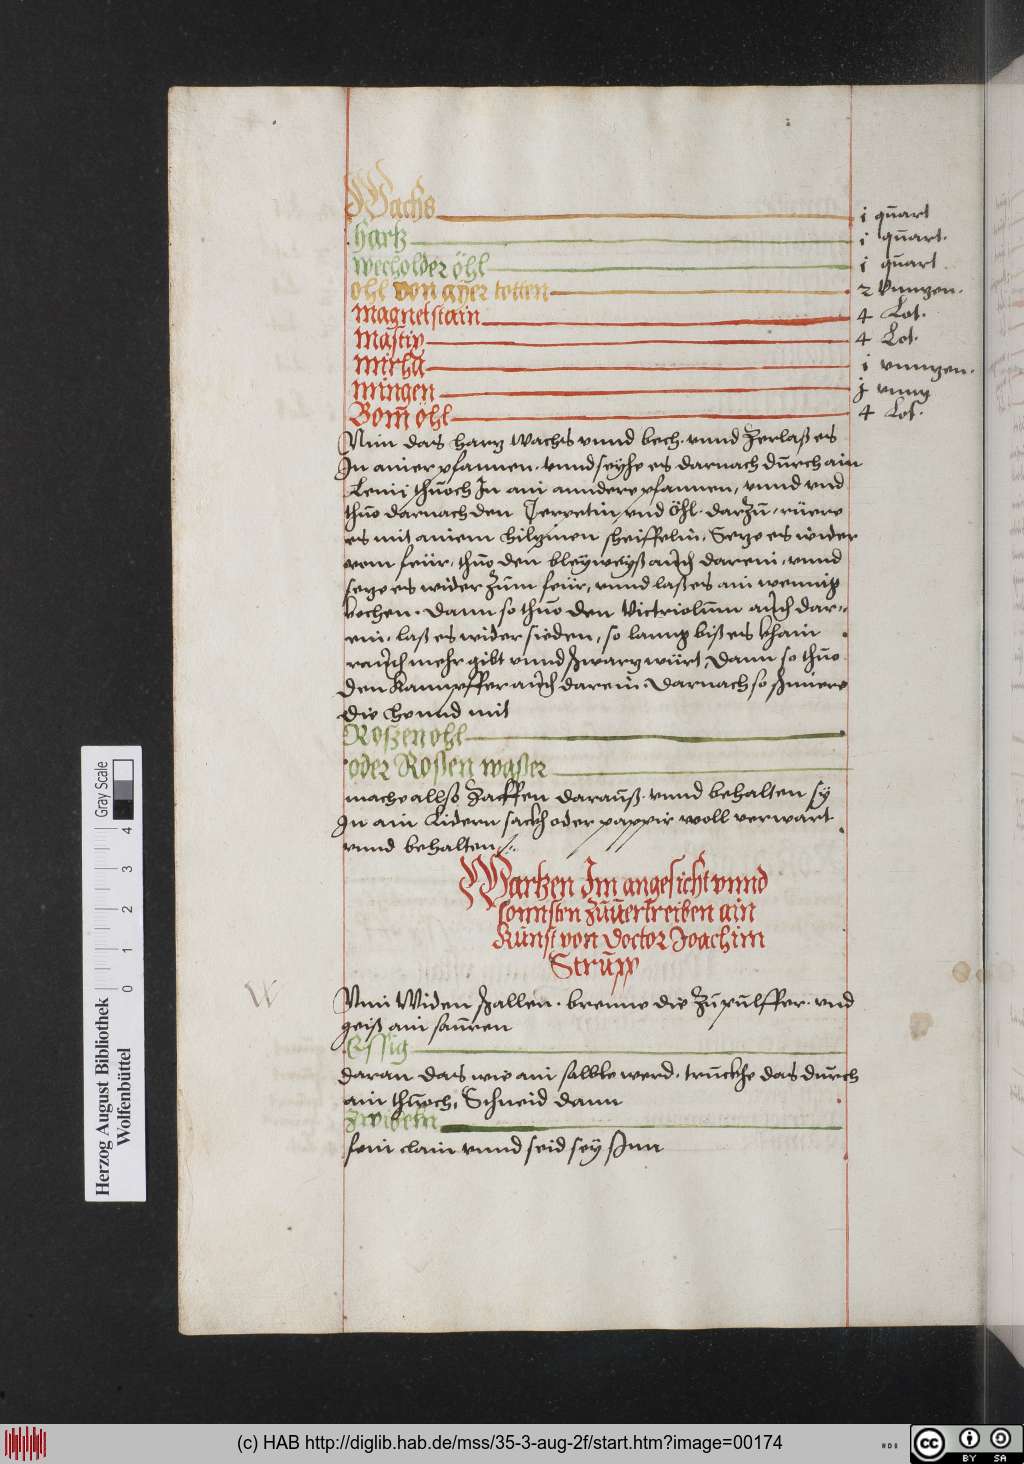 Wachs i quart
hartz i quart.
wecholder öhl i quart
öhl von ayer totten 2 Vnntzen.
magnetstain 4 Lot.
mastix 4 Lot.
mirha i vnntzen.
mingen j vnntz
Bom̄ öhl 4 Lot.
Nim das hartz wachs vnnd bech. vnnd Zerlaß es
In ainer pfannen. vnnd seyhe es darnach dūrch ain
Leini thūoch In ain anndere pfannen, vnnd vnd
thūo darnach den Terpetin, vnd öhl. darzū. rüere
es mit ainem hiltzinen scheiffelin. Setze es wider
vom feür, thūo den bleyweyß aūch darein. vnnd
setze es wider zūm feür, vnnd laß es ain weenig
kochen. Dann so thūo den Victriolūm aūch dar:,
ein. laß es wider sieden, so lanng biß es khain
raūch mehr gibt vnnd schwartz würt, Dann so thūo
den Kampffer aūch darein. Darnach so schmiere
die hennd mit
Roßen öhl
oder Roßen waßer
mach allso Zapffen daraūß. vnnd behalten sy
In ain Lidern sackh oder pappir woll verwart
vnnd behalten
Wartzen Im angesicht vnnd
sonnsten zūuertreiben ain
Kūnst von doctor Joachim
Strūpp
W
Nim Widen schallen. brenne die zū pūlffer. vnd
geiß ain saūren
Essig
daran das wie ain salble werd. trūckhe das dūrch
ain thūoch. Schneid dann
Zwibeln
fein clain vnnd seid sey Inn
Herzog August Bibliothek
Wolfenbüttel
0 1 2 3 4
Gray Scale
(c) HAB http://diglib.hab.de/mss/35-3-aug-2f/start.htm?image=00174
cc BY SA